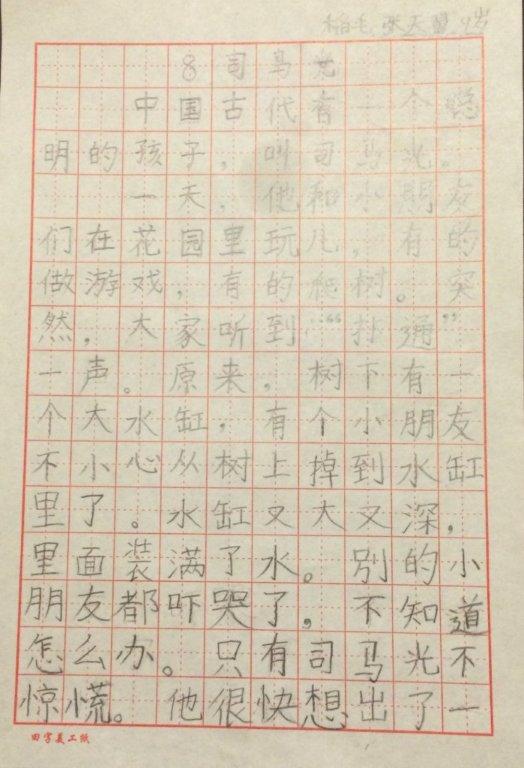 稻毛 张天 9岁
8 司马光
中国古代有一个聪
明的孩子，叫司马光。
一天，他和小朋友
们在花园里玩儿，有的
做游戏，有的爬树。突
然，大家听到“扑通”
一声。原来，树下有一
个大水缸，有个小朋友
不小心从树上掉到水缸
里了。水缸又大又深，
里面装满了水。别的小
朋友都吓哭了，不知道
怎么办。只有司马光不
惊慌。他很快想出了一
田字美工纸